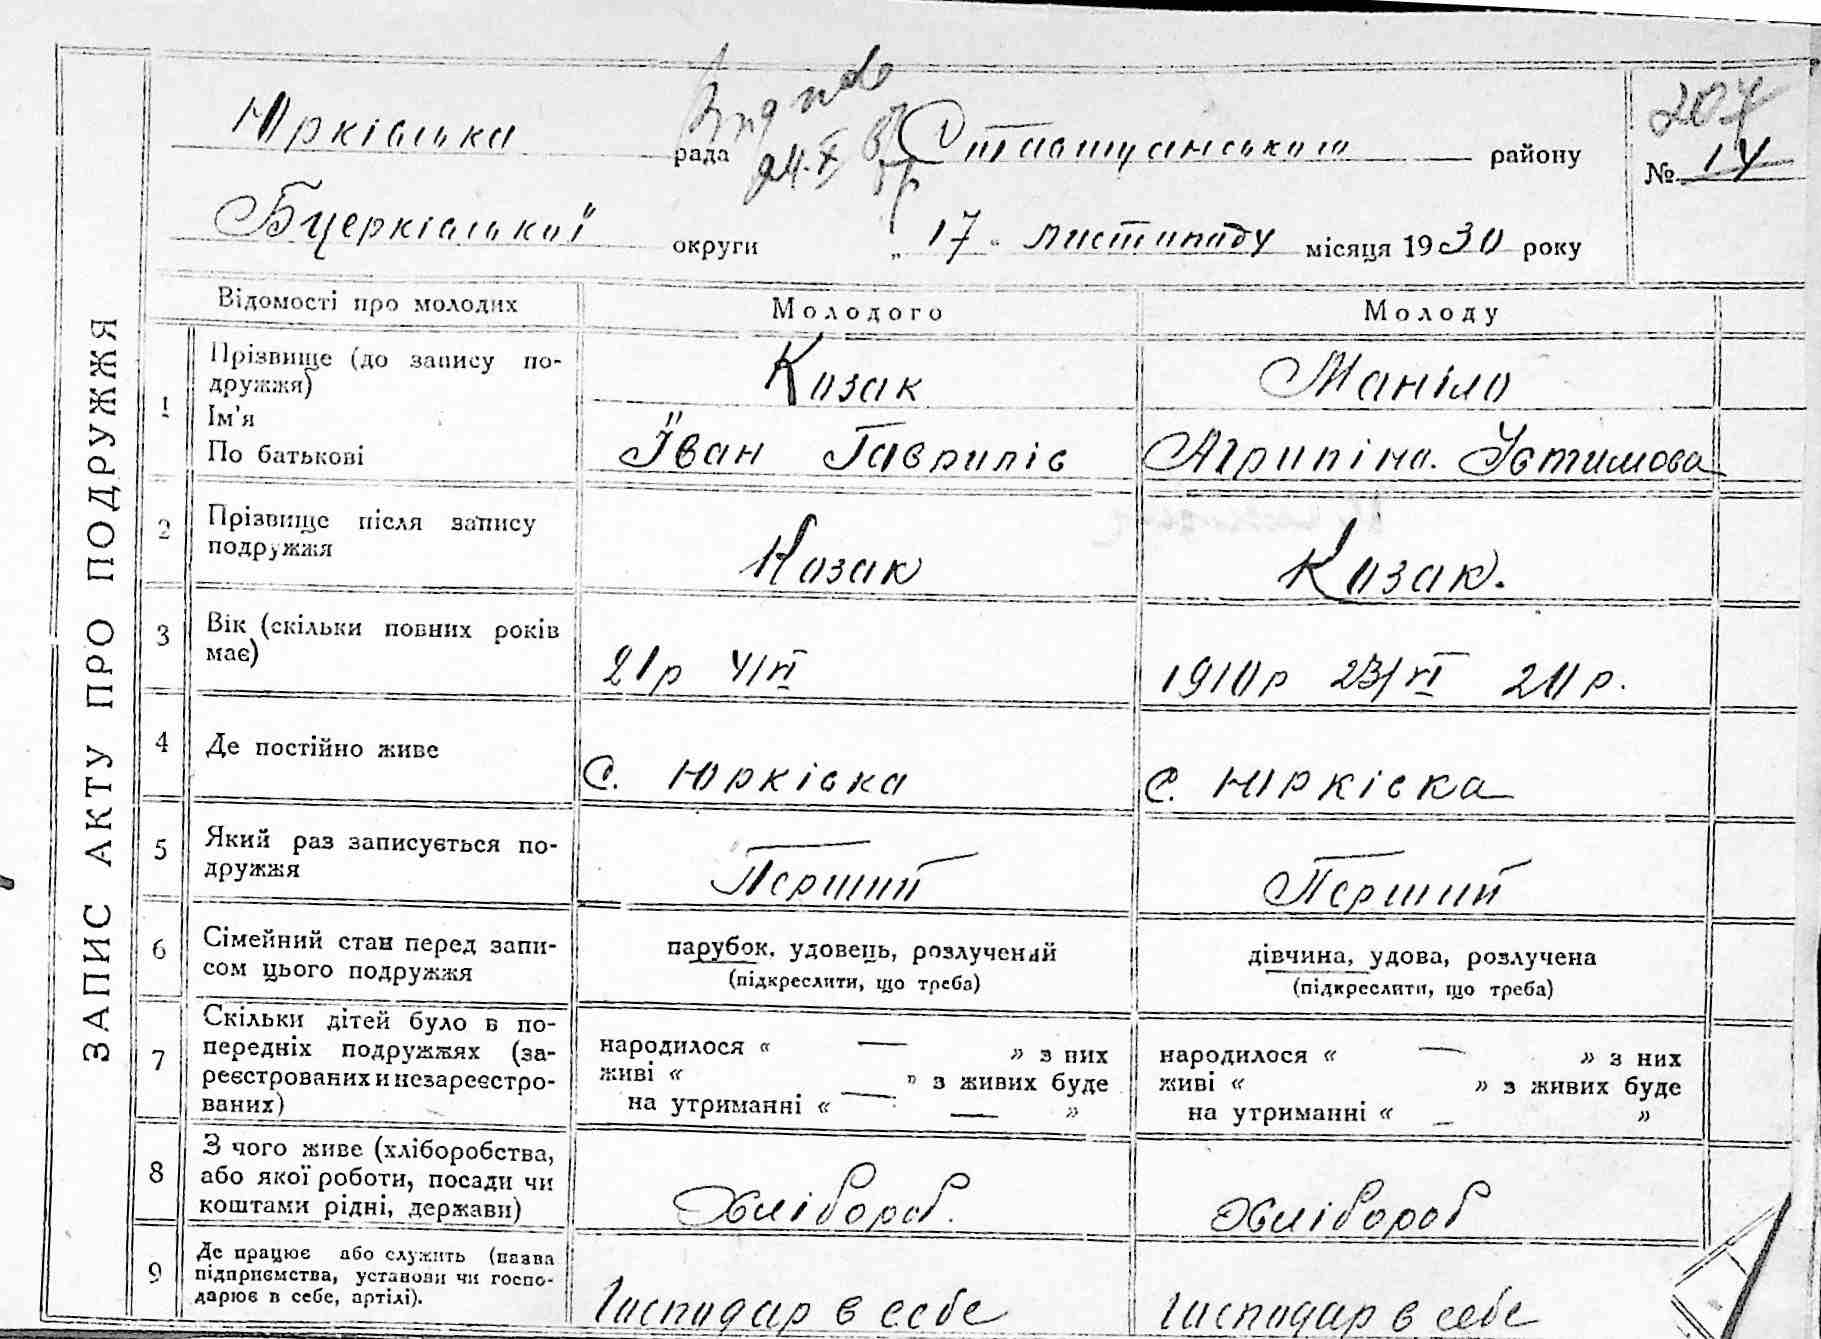 ЗАПИС АКТУ ПРО ПОДРУЖЖЯ
Юрківська рада Ставищанського району
207
№ 14
Бцерківської округи „17" листопаду місяця 1930 року
Відомості про молодих
Молодого
Молоду
1
Прізвище (до запису по-
дружжя)
Ім'я
По батькові
Козак
Іван Гаврилів
Маніло
Агрипіна Устимова
2
Прізвище після запису
подружжя
Козак
Козак.
3
Вік (скільки повних років
має)
21р 4/VI
1910р 23/VI 20 р.
4
Де постійно живе
С. Юрківка
С. Юрківка
5
Який раз записується по-
дружжя
Перший
Перший
6
Сімейний стан перед запи-
сом цього подружжя
парубок, удовець, розлучений
(підкреслити, що треба)
дівчина, удова, розлучена
(підкреслити, що треба)
7
Скільки дітей було в по-
передніх подружжях (за-
реєстрованих и незареєстро-
ваних)
народилося « — » з них
живі « — » з живих буде
на утриманні « — »
народилося « — » з них
живі « » з живих буде
на утриманні « — »
8
З чого живе (хліборобства,
або якої роботи, посади чи
коштами рідні, держави)
Хлібороб.
Хлібороб
9
Де працює або служить (назва
підприємства, установи чи госпо-
дарює в себе, артілі).
Господар в себе
Господар в себе